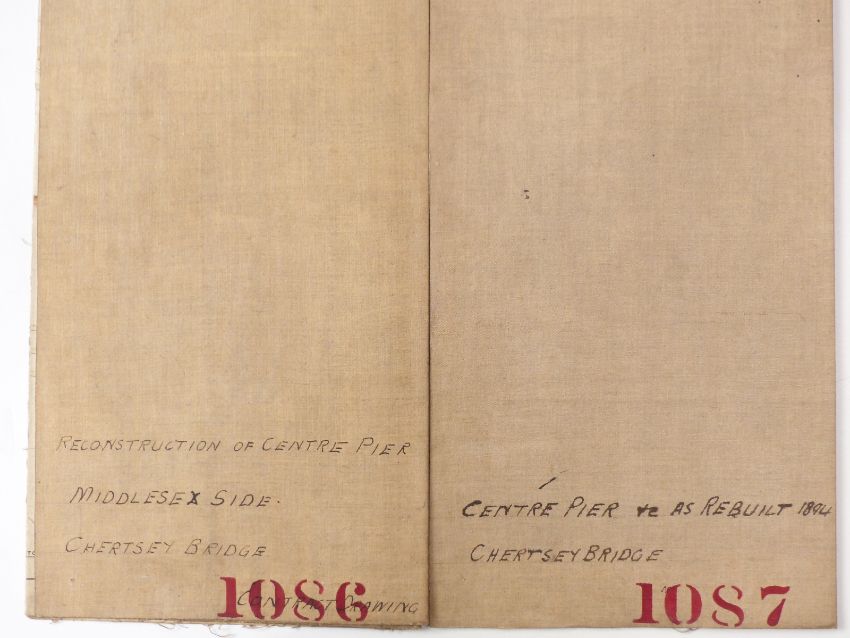 RECONSTRUCTION OF CENTRE PIER
MIDDLESEX SIDE.
CHERTSEY BRIDGE
1086
CONTRACT DRAWING
CENTRE PIER re AS REBUILT 1894
CHERTSEY BRIDGE
1087